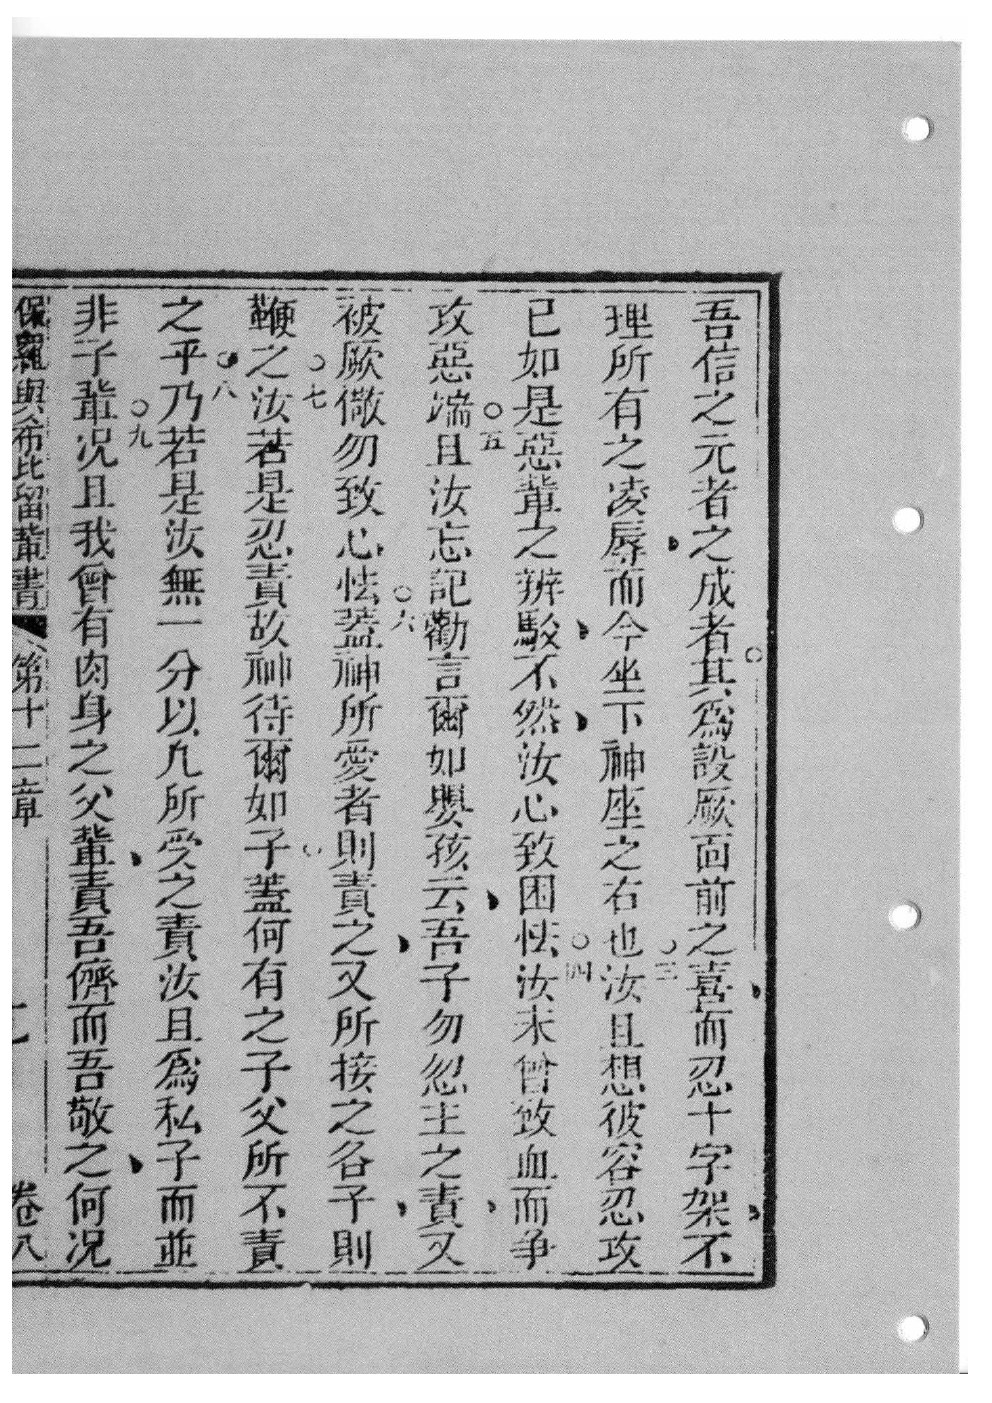 吾信之元者之成者其為設厥面前之喜而忍十字架不
理所有之凌辱而今坐下神座之右也○三汝且想彼容忍攻
己如是惡輩之辨駁不然汝心致困怯○四汝未曾致血而争
攻惡端○五且汝忘記勸言爾如嬰孩云吾子勿忽主之責又
被厥儆勿致心怯○六蓋神所愛者則責之又所接之各子則
鞭之○七汝若是忍責故神待爾如子蓋何有之子父所不責
之乎○八乃若是汝無一分以凢所受之責汝且為私子而並
非子輩○九况且我曾有肉身之父輩責吾儕而吾敬之何况
保羅與希比留輩書 第十二章 卷八